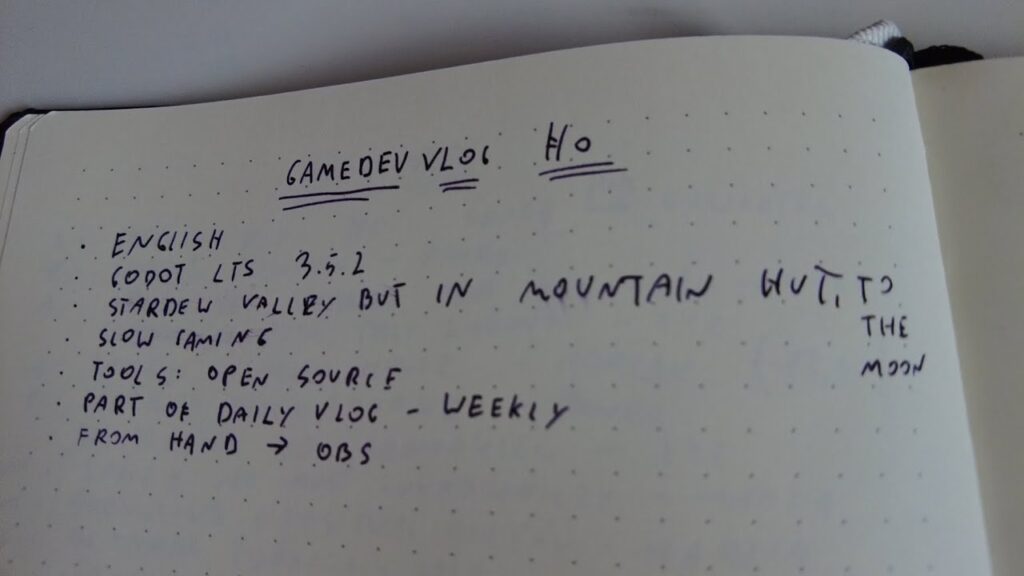 GAMEDEV VLOG HO
· ENGLISH
· GODOT LTS 3.5.2
· STARDEW VALLEY BUT IN MOUNTAIN HUT, TO
THE
MOON
· SLOW GAMING
· TOOLS: OPEN SOURCE
· PART OF DAILY VLOG - WEEKLY
· FROM HAND → OBS